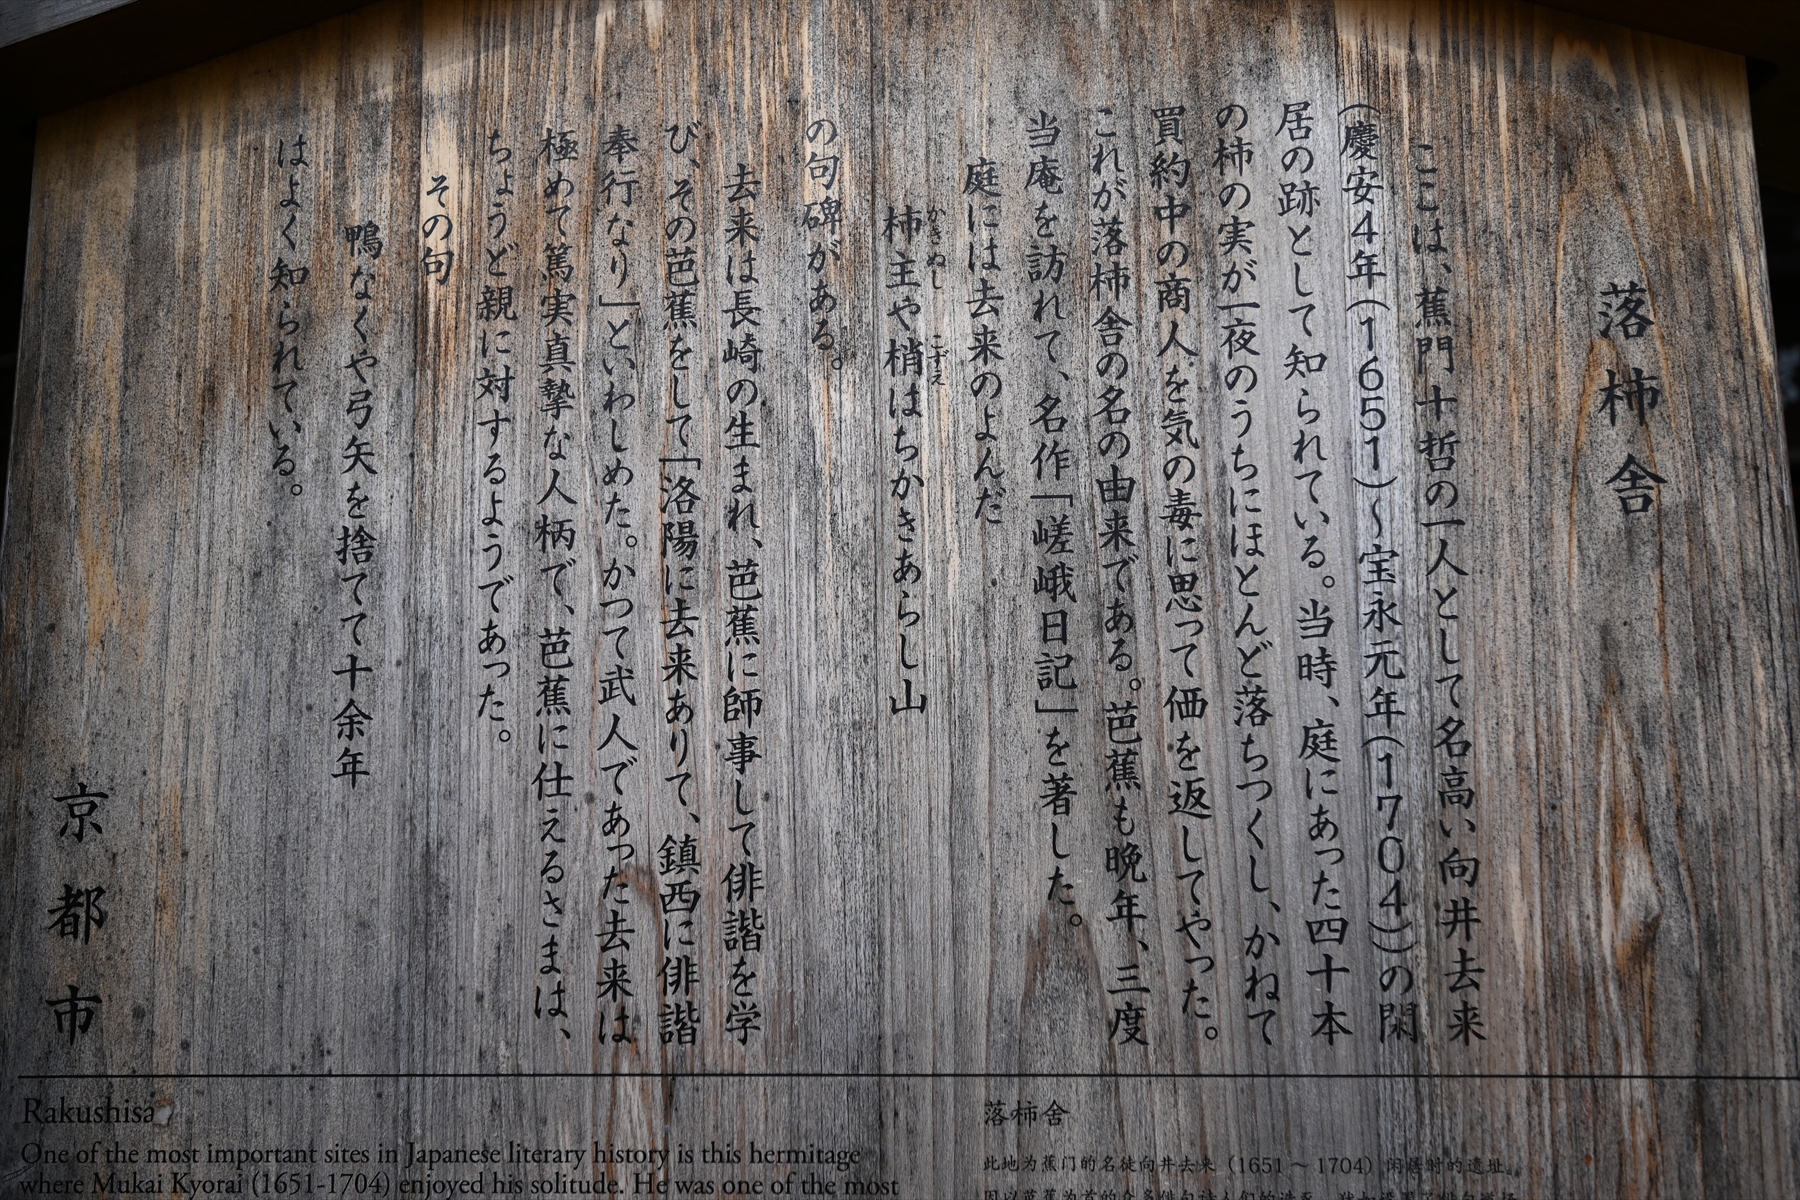 落柿舎
ここは、蕉門十哲の一人として名高い向井去来
(慶安4年(1651)~宝永元年(1704))の閑
居の跡として知られている。当時、庭にあった四十本
の柿の実が一夜のうちにほとんど落ちつくし、かねて
買約中の商人を気の毒に思って価を返してやった。
これが落柿舎の名の由来である。芭蕉も晩年、三度
当庵を訪れて、名作「嵯峨日記」を著した。
庭には去来のよんだ
柿主や梢はちかきあらし山
かきぬし こずえ
の句碑がある。
去来は長崎の生まれ、芭蕉に師事して俳諧を学
び、その芭蕉をして「洛陽に去来ありて、鎮西に俳諧
奉行なり」といわしめた。かつて武人であった去来は
極めて篤実真摯な人柄で、芭蕉に仕えるさまは、
ちょうど親に対するようであった。
その句
鴨なくや弓矢を捨てて十余年
はよく知られている。
京都市
Rakushisa
One of the most important sites in Japanese literary history is this hermitage
where Mukai Kyorai (1651-1704) enjoyed his solitude. He was one of the most
落柿舍
此地为蕉门的名徒向井去来(1651~1704)闲居时的遗址。